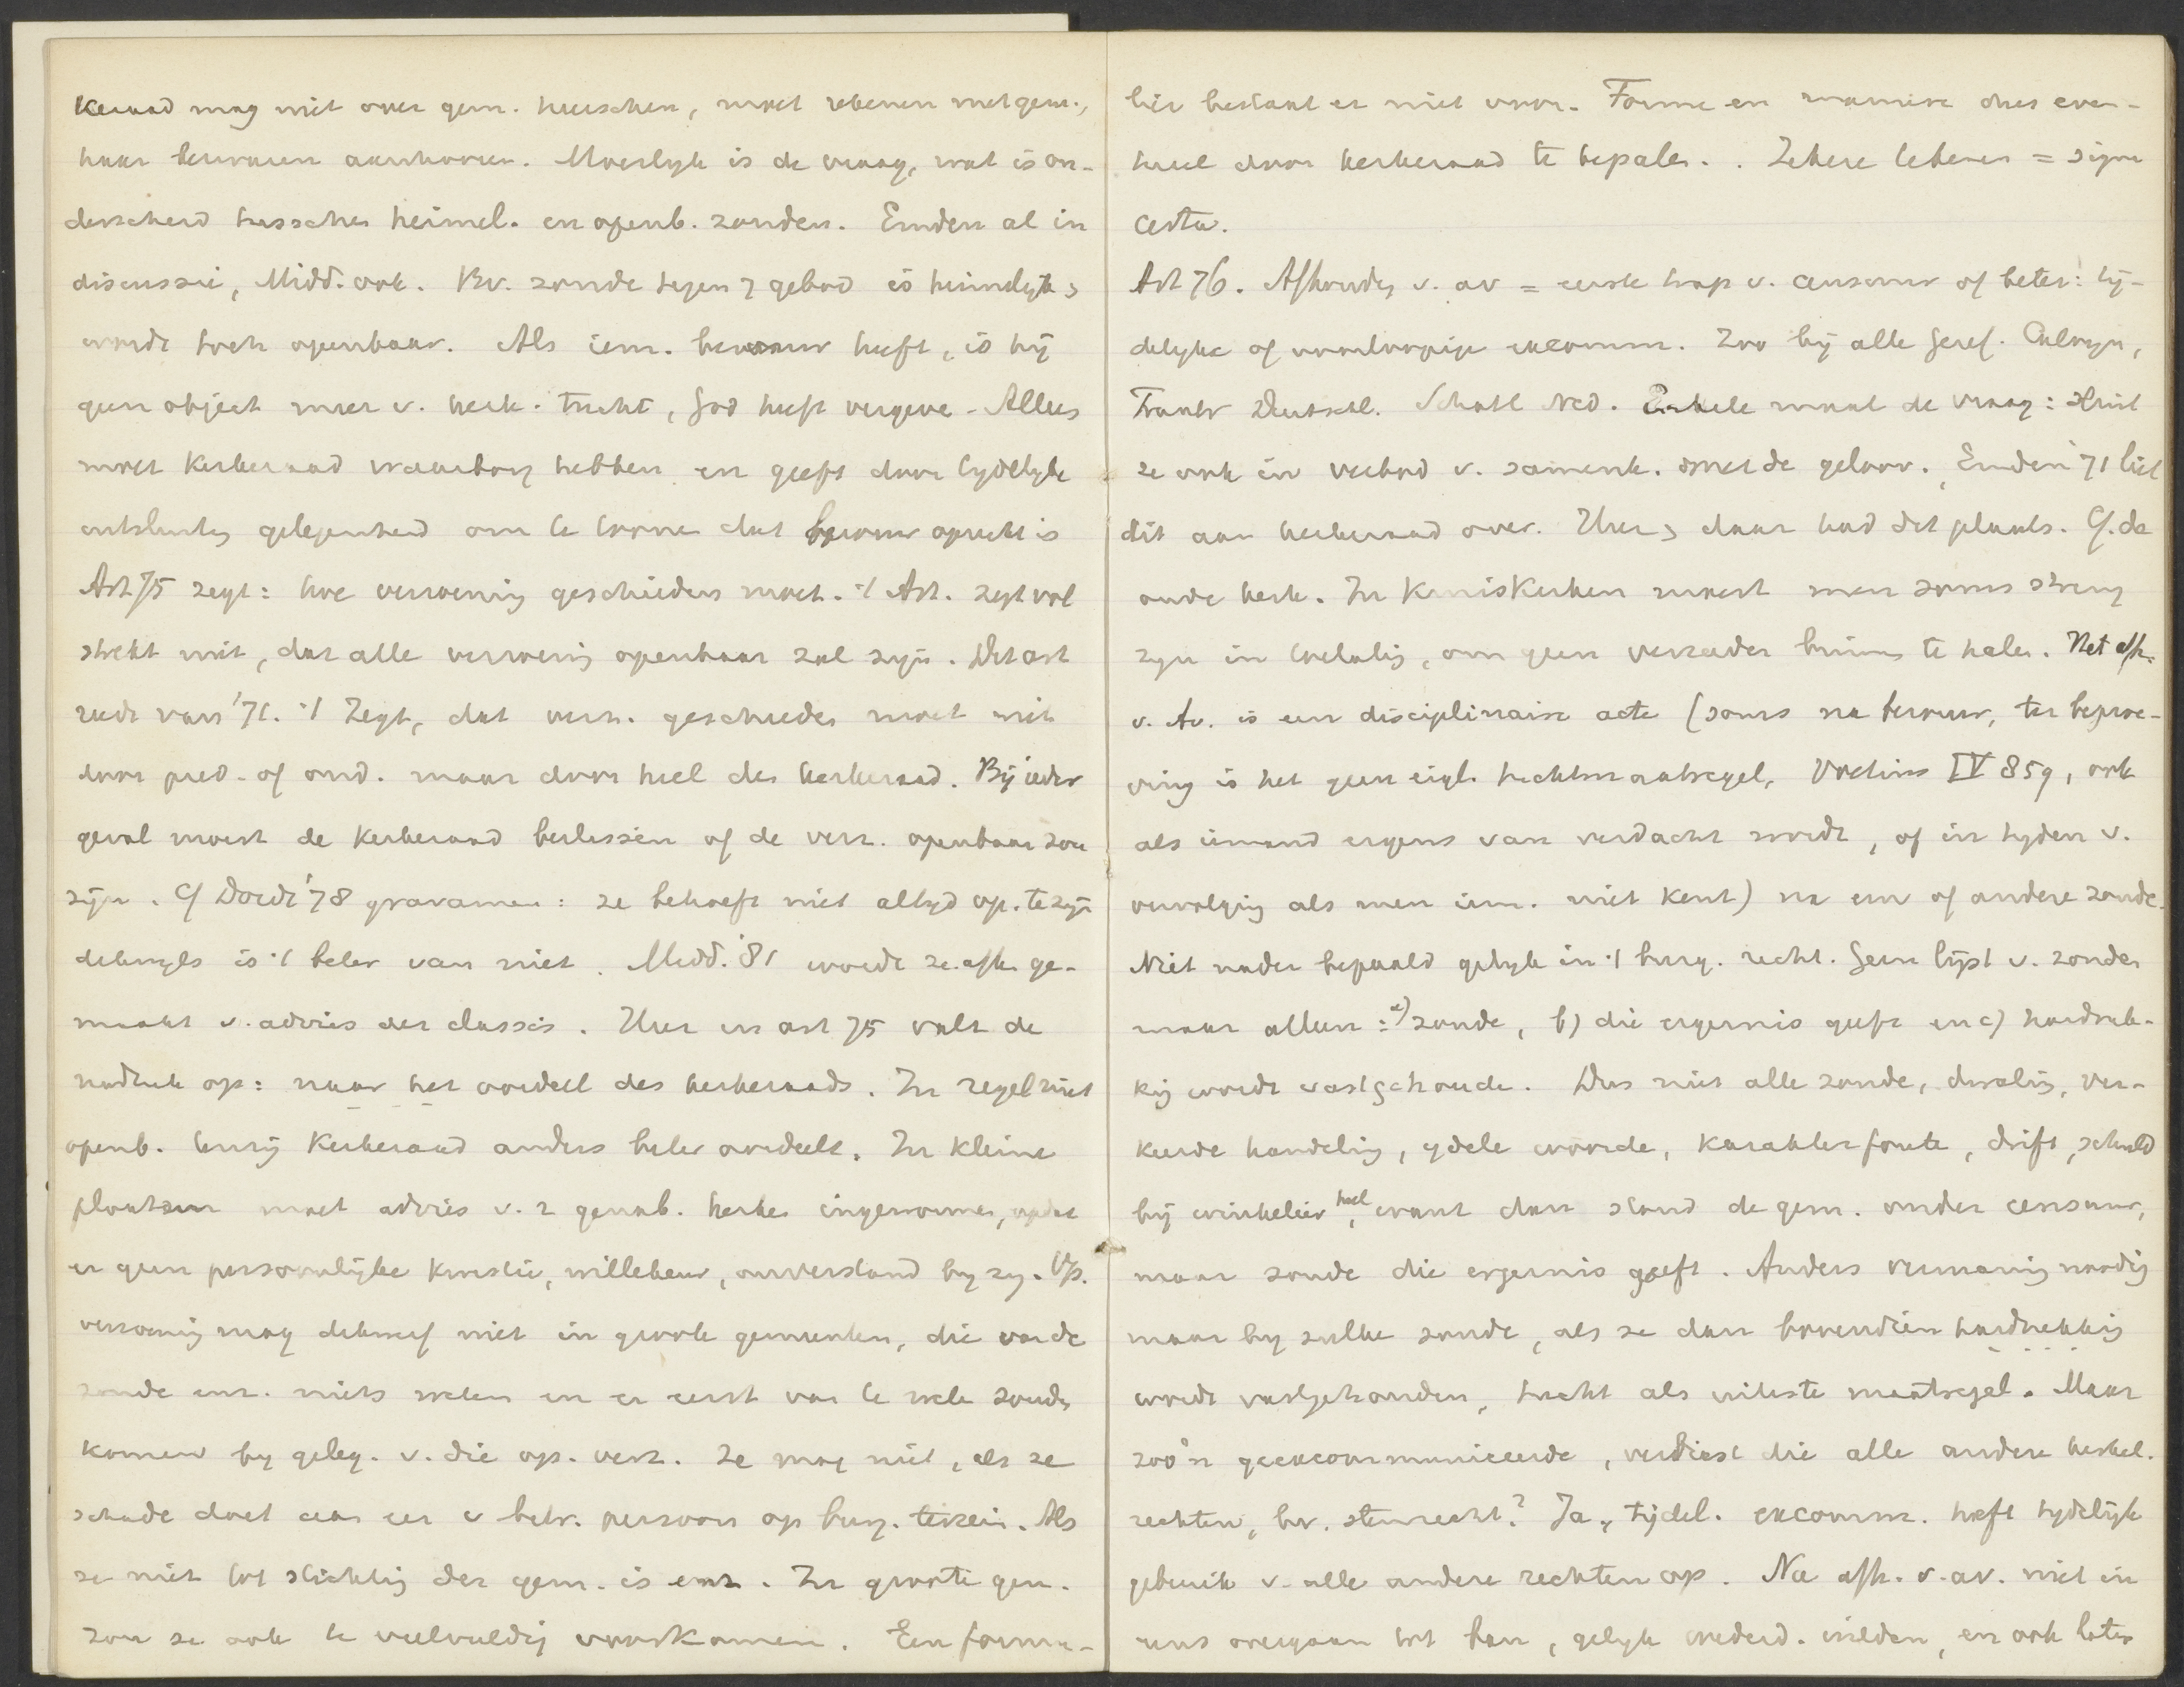 Keraad mag niet over gem. heerschen, moet rekenen met gem.,
haar bezwaren aanhooren. Moeilyk is de vraag, wat is on-
derscheid tusschen heimel. en openb. zonden. Emden al in
discussie, Midd. ook. Bv. zonde tegen 7 gebod is heimelyk &
wordt toch openbaar. Als iem. berouw heeft, is hij
geen object meer v. kerk. tucht, God heeft vergeve. Alleen
moet Kerkeraad waarborg hebben en geeft door tydelyke
ontslutig gelegenheid om te toone dat berouw oprecht is
Art 75 zegt: hoe verzoenig geschieden moet. 't Art. zegt vol
strekt niet, dat alle verzoenig openbaar zal zyn. Dit art
reeds van '71. 't Zegt, dat verz. geschieden moet niet
door pred. of oud. maar door heel den kerkeraad. Bij ieder
geval moest de Kerkeraad beslissen of de verz. openbaar zou
zijn. Cf Dordr '78 gravamen: ze behoeft niet altyd op. te zyn
dikwyls is 't beter van niet. Midd. '81 wordt ze afh. ge-
maakt v. advies der classis. Hier in art 75 valt de
nadruk op: naar het oordeel des kerkeraads. In regel niet
openb. tenzij Kerkeraad anders beter oordeelt. In kleine
plaatsen moet advies v. 2 genab. kerken ingenomen, opdat
er geen persoonlijke kwestie, willekeur, onverstand by zy. Op.
verzoenig mag dikwyls niet in groote gemeenten, die van de
zonde enz. niets weten en er eerst van te wete zouden
komen by geleg. v. die op. verz. Ze mag niet, als ze
schade doet aan eer v betr. persoon op burg. terrein. Als
ze niet tot stichtig der gem. is enz. In groote gem.
zou ze ook te veelvuldig voorkomen. Een formu-
lier bestaat er niet voor. Forme en maniere dus even-
tueel door kerkeraad te bepalen. Zekere tekenen = signa
certa.
Art 76. Afhoudig v. av = eerste trap v. censuur of beter: tij-
delyke of voorloopige excomm. Zoo bij alle Geref. Calvyn,
Frankr Duitschl. Schotl Ned. Enkele maal de vraag: sluit
ze ook in verbod v. samenk. met de geloov. Emden '71 liet
dit aan kerkeraad over. Hier & daar had dit plaats. Cf. de
oude kerk. In Kruiskerken moest men soms streng
zyn in toelatig, om geen verrader binnen te halen. Het afh.
v. Av. is een disciplinaire acte (soms na berouw, ter beproe-
ving is het geen eigl. tuchtmaatregel, Voetius IV 859, ook
als iemand ergens van verdacht wordt, of in tyden v.
vervolgig als men iem. niet kent) na een of andere zonde.
Niet nader bepaald gelyk in 't burg. recht. Geen lijst v. zonden
maar alleen: a) zonde, b) die ergernis geeft en c) hardnek-
kig wordt vastgehoude. Dus niet alle zonde, dwalig, ver-
keerde handelig, ydele woorde, karakterfoute, drift, schuld
bij winkelier heel, want dan stond de gem. onder censuur,
maar zonde die ergernis geeft. Anders vermanig noodig
maar by zulke zonde, als ze dan bovendien hardnekkig
wordt vastgehouden, tucht als uiterste maatregel. Maar
zoo'n geexcommuniceerde, verliest die alle andere kerkel.
rechten, bv. stemrecht? Ja, tijdel. excomm. heft tydelijk
gebruik v. alle andere rechten op. Na afh. v. av. niet in
eens overgaan tot ban, gelyk wederd. wilden, en ook later